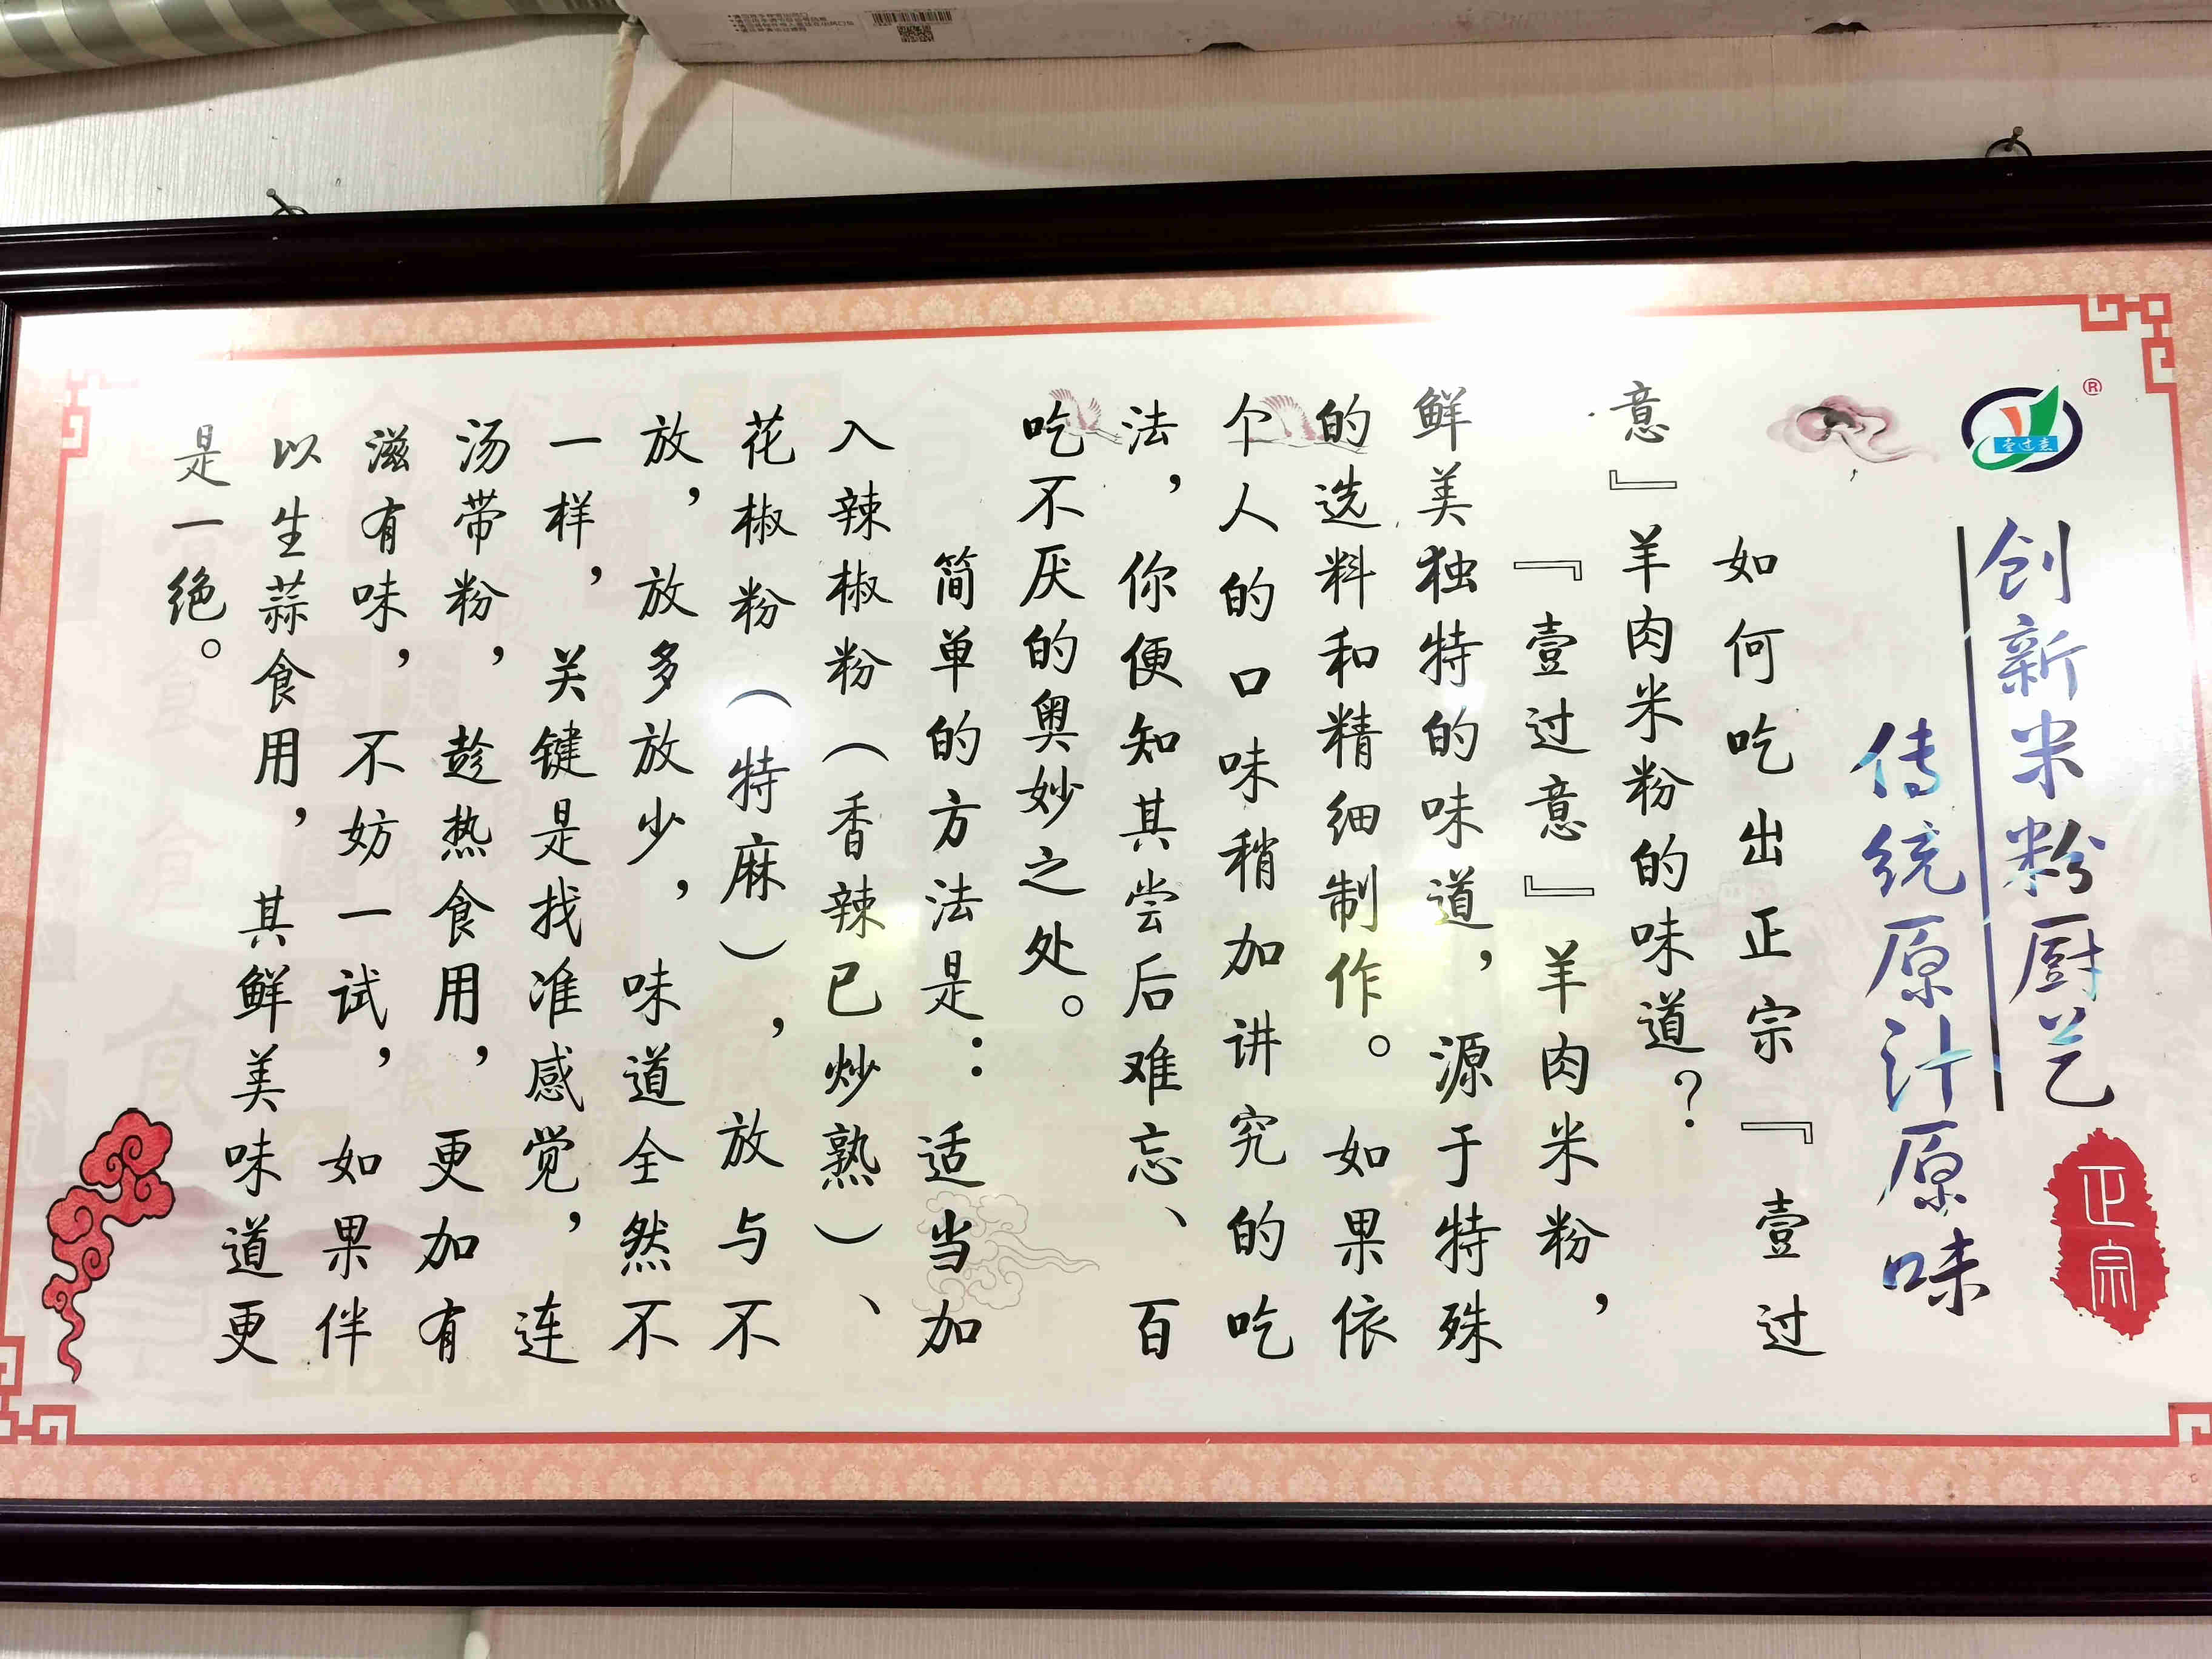 壹过意
®
创新米粉厨艺
传统原汁原味
正宗
如何吃出正宗『壹过
意』羊肉米粉的味道？
『壹过意』羊肉米粉，
鲜美独特的味道，源于特殊
的选料和精细制作。如果依
个人的口味稍加讲究的吃
法，你便知其尝后难忘、百
吃不厌的奥妙之处。
简单的方法是：适当加
入辣椒粉（香辣已炒熟）、
花椒粉（特麻），放与不
放，放多放少，味道全然不
一样，关键是找准感觉，连
汤带粉，趁热食用，更加有
滋有味，不妨一试，如果伴
以生蒜食用，其鲜美味道更
是一绝。